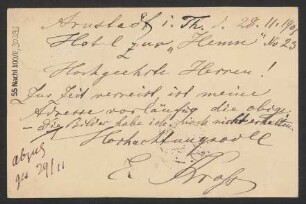 Arnstadt i. Th. d. 28.11.190
Hotel zur „Henne" No 23
Hochgeehrte Herren!
Zur Zeit verreist, ist meine
Adresse vorläufig die obige.
Die Bilder habe ich noch nicht erhalten.
Hochachtungsvoll
E. Kross
29/11